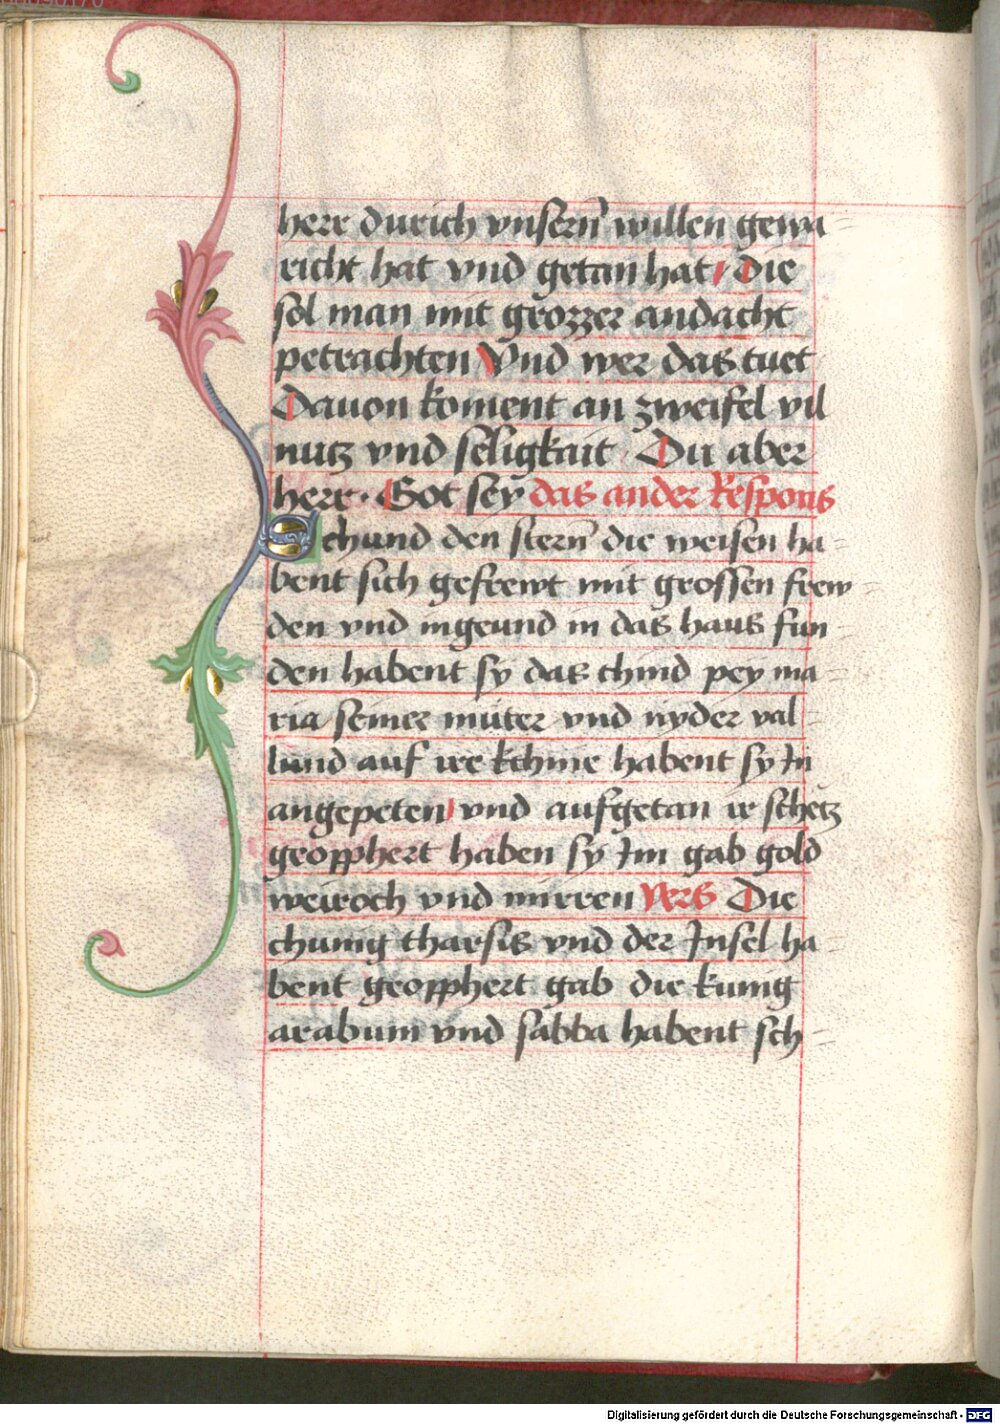 herr durich vnsern̄ willen gewa⸗
richt hat vnd getan hat / Die
sol man mit grozzer andacht
petrachten Vnd wer das tuet
Dauon koment an zweifel vil
nutz vnd seligkait / Du aber
herr · Got sey das ander Respons
Sehund den stern̄ die weisen ha⸗
bent sich gefrewt mit grossen frew⸗
den vnd ingeund in das haus fun⸗
den habent sy das chind pey ma⸗
ria seiner müter vnd nyder val⸗
lund auf ire kchnie habent sy In
angepeten / vnd aufgetan ir schetz
geopphert haben sy Im gab gold
weiroch vnd mirren Vers Die
chunig tharsis vnd der Insel ha⸗
bent geopphert gab die kunig
arabum vnd sabba habent sch⸗
Digitalisierung gefördert durch die Deutsche Forschungsgemeinschaft - DFG